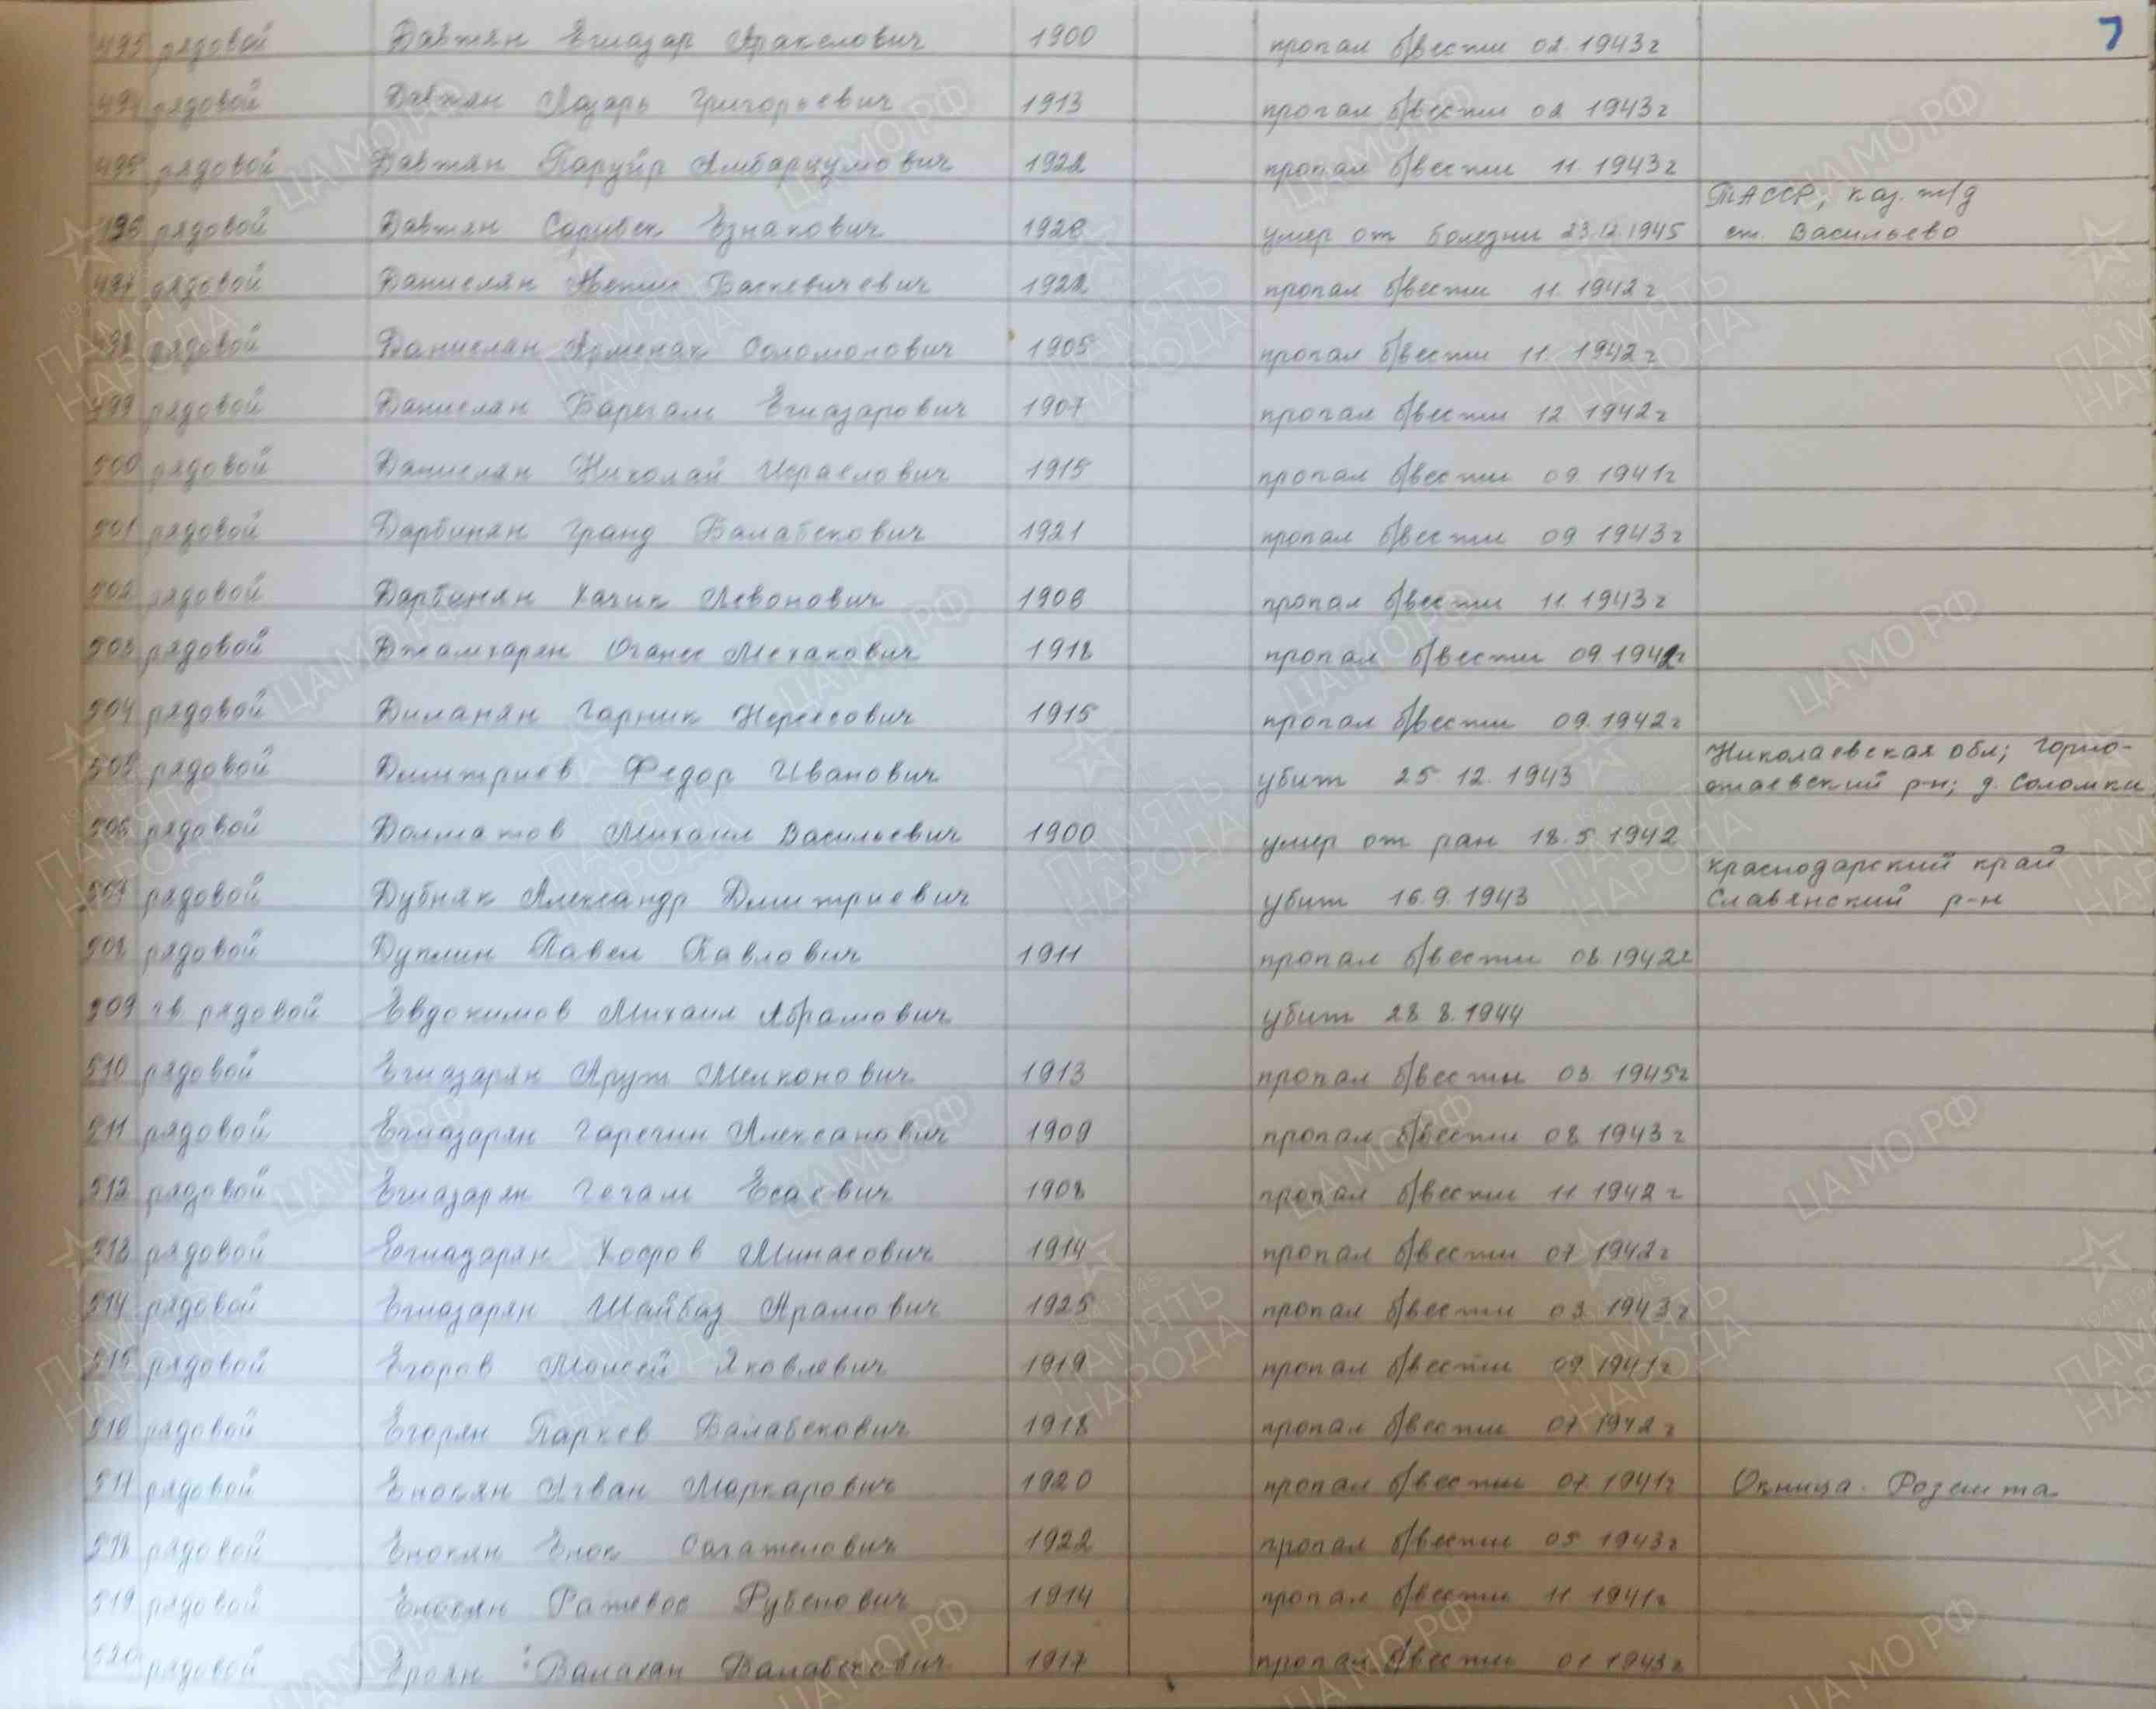 7
493 рядовой Давтян Егиазар Аракелович 1900 пропал б/вести 02.1943г
494 рядовой Давтян Лазарь Григорьевич 1913 пропал б/вести 02 1943г
495 рядовой Давтян Паруйр Амбарцумович 1922 пропал б/вести 11 1943г
ТАССР, каз. ж/д
496 рядовой Давтян Сарибек Езнакович умер от болезни 23.12.1945 ст. Васильево
497 рядовой Даниелян 1922 пропал б/вести 11.1942г
498 рядовой Даниелян Арменак Соломонович 1905 пропал б/вести 11.1942г
499 рядовой Даниелян Барегам Егиазарович 1907 пропал б/вести 12 1942г
500 рядовой Даниелян Николай Исраелович 1915 пропал б/вести 09 1941г
501 рядовой Дарбинян Гранд Балабекович 1921 пропал б/вести 09 1943г
502 рядовой Дарбинян Хачик Левонович 1906 пропал б/вести 11.1943г
503 рядовой Джамхарян Оганес Мехакович 1918 пропал б/вести 09.1942г
504 рядовой Диланян Гарник Нерсесович 1915 пропал б/вести 09.1942г
Николаевская обл; Горно-
505 рядовой Дмитриев Федор Иванович убит 25.12.1943 стаевский р-н; д. Соломки
506 рядовой Долматов Михаил Васильевич 1900 умер от ран 18.5.1942
Краснодарский край
507 рядовой Дубняк Александр Дмитриевич убит 16.9.1943 Славянский р-н
508 рядовой Дуплин Павел Павлович 1911 пропал б/вести 08.1942г
509 гв. рядовой Евдокимов Михаил Абрамович убит 28.8.1944
510 рядовой Егиазарян Арут Мелконович 1913 пропал б/вести 03 1945г
511 рядовой Егиазарян Гарегин Алексанович 1909 пропал б/вести 08 1943г
512 рядовой Егиазарян Гегам Есаевич 1908 пропал б/вести 11 1942г
513 рядовой Егиазарян Хосров Минасович 1914 пропал б/вести 07 1942г
514 рядовой Егиазарян Шайбаз Арамович 1925 пропал б/вести 03 1943г
515 рядовой Егоров Моисей Яковлевич 1919 пропал б/вести 09 1941г
516 рядовой Егорян Паркев Балабекович 1918 пропал б/вести 07 1942г
517 рядовой Енокян Агван Маркарович 1920 пропал б/вести 07.1941г Окница.
518 рядовой Енокян Енок Согателович 1922 пропал б/вести 05 1943г
519 рядовой Енокян Ратевос Рубенович 1914 пропал б/вести 11 1941г
520 рядовой Ероян Балахан Балабекович 1917 пропал б/вести 01 1943г
ЦАМО.РФ
1941-1945
ПАМЯТЬ
НАРОДА